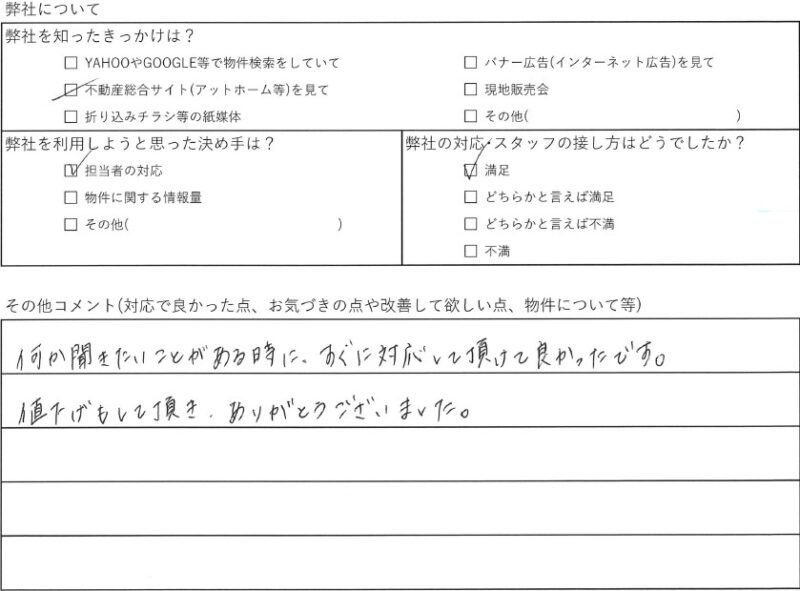 弊社について
弊社を知ったきっかけは？
□ YAHOOやGOOGLE等で物件検索をしていて
□ バナー広告(インターネット広告)を見て
☑ 不動産総合サイト(アットホーム等)を見て
□ 現地販売会
□ 折り込みチラシ等の紙媒体
□ その他( )
弊社を利用しようと思った決め手は？
☑ 担当者の対応
□ 物件に関する情報量
□ その他( )
弊社の対応・スタッフの接し方はどうでしたか？
☑ 満足
□ どちらかと言えば満足
□ どちらかと言えば不満
□ 不満
その他コメント(対応で良かった点、お気づきの点や改善して欲しい点、物件について等)
何か聞きたいことがある時に、すぐに対応して頂けて良かったです。
値下げもして頂き、ありがとうございました。